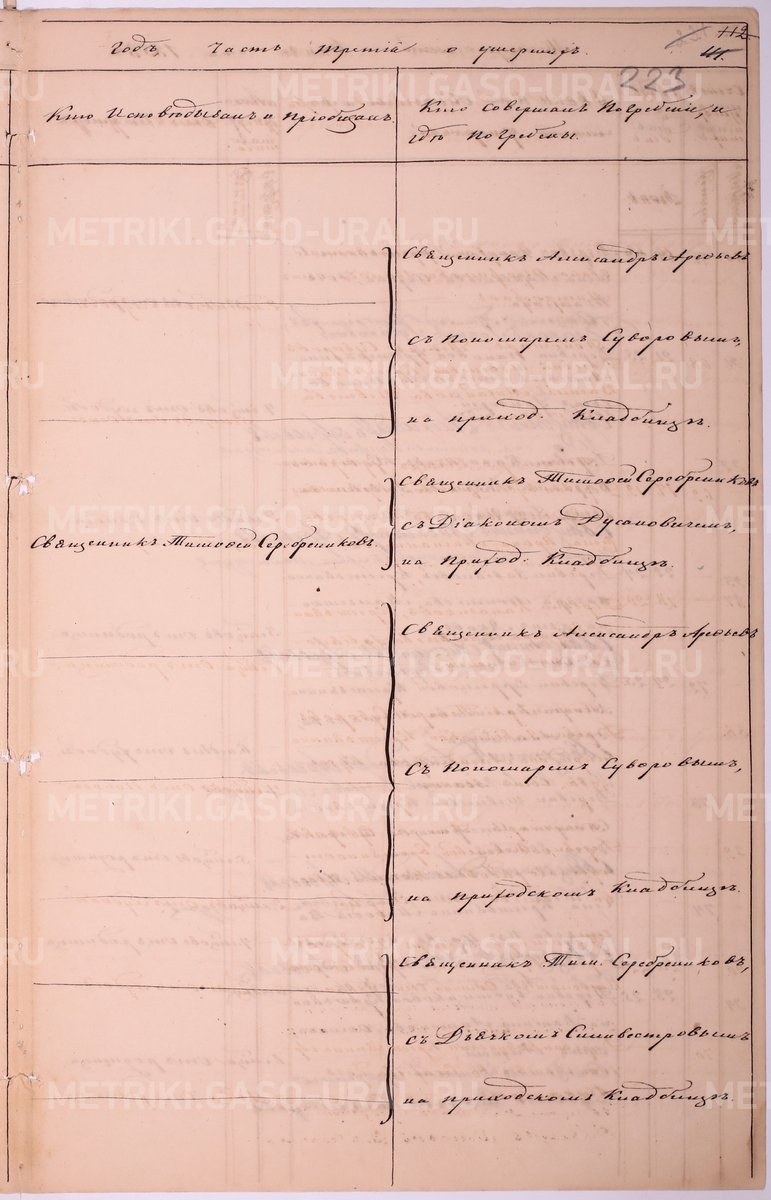 112
111.
223
Годъ, Часть третія о умершихъ.
Кто Исповѣдывалъ и Пріобщалъ.
Кто совершалъ Погребеніе, и
гдѣ Погребены.
Священникъ Александръ Арефьевъ
съ Пономаремъ Суворовымъ,
на приход. Кладбищѣ.
Священникъ Тимофей Серебрениковъ
съ Діакономъ Русановичемъ,
на Приход. Кладбищѣ.
Священникъ Тимофей Серебрениковъ.
Священникъ Александръ Арефьевъ
Съ Пономаремъ Суворовымъ,
на Приходскомъ Кладбищѣ.
Священникъ Тим. Серебрениковъ,
съ Дьячкомъ Силивестровымъ
на приходскомъ Кладбищѣ.
METRIKI.GASO-URAL.RU